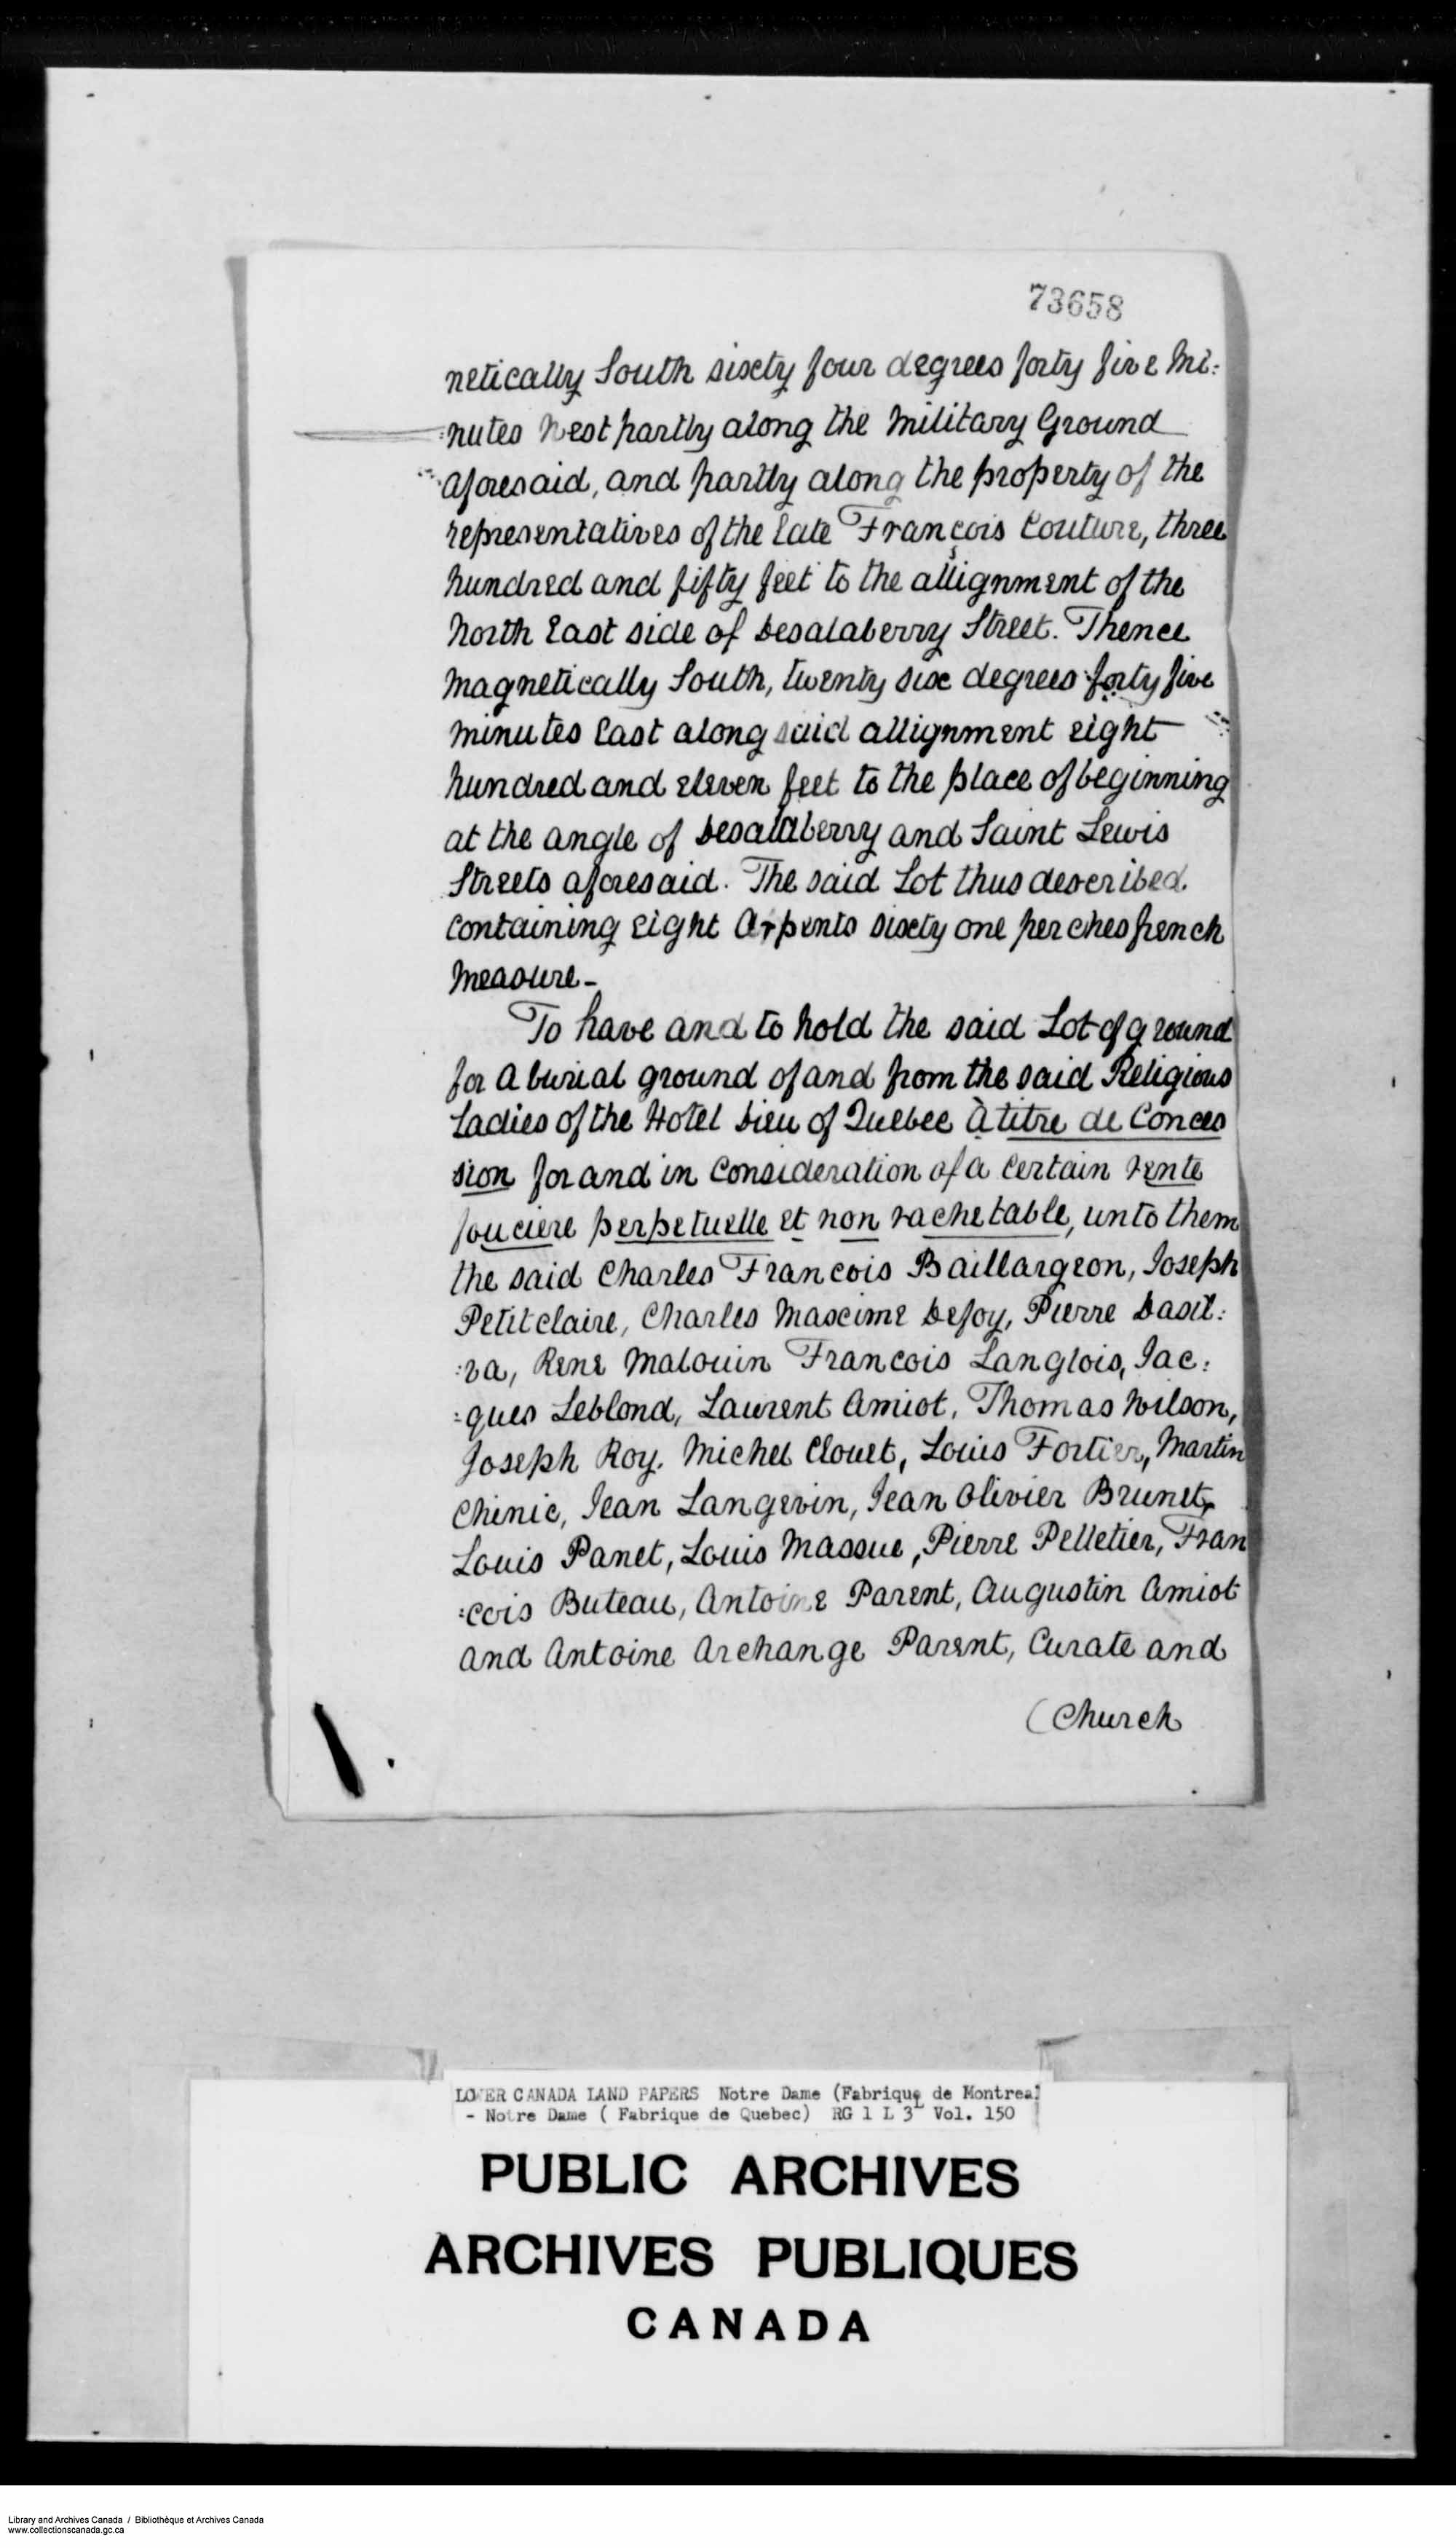 73658
netically South sixty four degrees forty five Mi:
:nutes West partly along the Military Ground
aforesaid, and partly along the property of the
representatives of the late François Couture, three
hundred and fifty feet to the allignment of the
North East side of Desalaberry Street. Thence
Magnetically South, twenty six degrees forty five
minutes East along said allignment eight
hundred and eleven feet to the place of beginning
at the angle of Desalaberry and Saint Lewis
Streets aforesaid. The said Lot thus described.
Containing eight Arpents sixty one perches french
measure-
To have and to hold the said Lot of ground
for a burial ground of and from the said Religious
Ladies of the Hotel Dieu of Quebec À titre de Conces
sion for and in Consideration of a Certain rente
fouciere perpetuelle et non rachetable, unto them
the said Charles Francois Baillargeon, Joseph
Petitclaire, Charles Maxime Defoy, Pierre Dasil:
:va, Rene Malouin Francois Langlois, Jac:
:ques Leblond, Laurent Amiot, Thomas Wilson,
Joseph Roy. Michel Clouet, Louis Fortier, Martin
Chinic, Jean Langevin, Jean Olivier Brunet,
Louis Panet, Louis Massue, Pierre Pelletier, Fran
:cois Buteau, Antoine Parent, Augustin Amiot
and Antoine Archange Parent, Curate and
(Church
LOWER CANADA LAND PAPERS Notre Dame (Fabrique de Montreal
- Notre Dame ( Fabrique de Quebec) RG 1 L 3L Vol. 150
PUBLIC ARCHIVES
ARCHIVES PUBLIQUES
CANADA
Library and Archives Canada / Bibliothèque et Archives Canada
www.collectionscanada.gc.ca